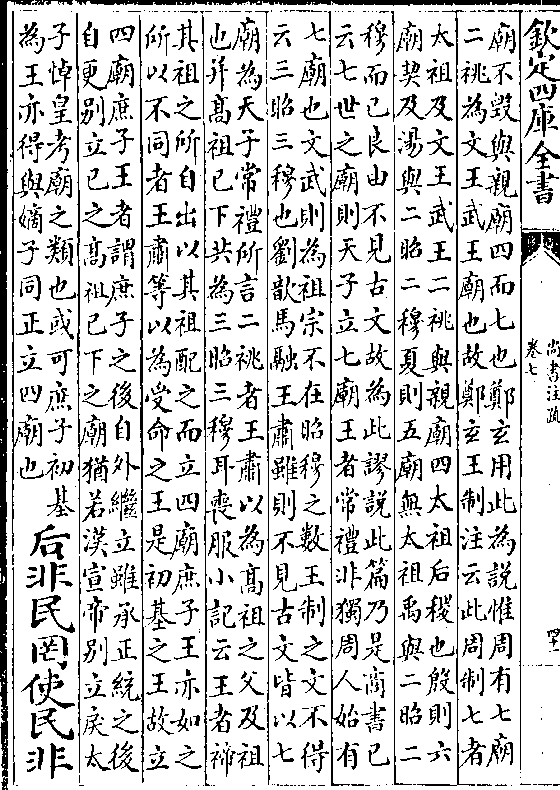 欽定四庫全書
尚書注疏
卷七
廟不毀與親廟四而七也鄭玄用此為說惟周有七廟
二祧為文王武王廟也故鄭玄王制注云此周制七者
太祖及文王武王二祧與親廟四太祖后稷也殷則六
廟契及湯與二昭二穆夏則五廟無太祖禹與二昭二
穆而已良由不見古文故為此謬說此篇乃是商書已
云七世之廟則天子立七廟王者常禮非獨周人始有
七廟也文武則為祖宗不在昭穆之數王制之文不得
云三昭三穆也劉歆馬融王肅雖則不見古文皆以七
廟為天子常禮所言二祧者王肅以為高祖之父及祖
也并高祖已下共為三昭三穆耳喪服小記云王者禘
其祖之所自出以其祖配之而立四廟庶子王亦如之
所以不同者王肅等以為受命之王是初基之王故立
四廟庶子王者謂庶子之後自外繼立雖承正統之後
自更別立已之高祖已下之廟猶若漢宣帝別立戾太
子悼皇考廟之類也或可庶子初基
為王亦得與嫡子同正立四廟也
后非民罔使民非